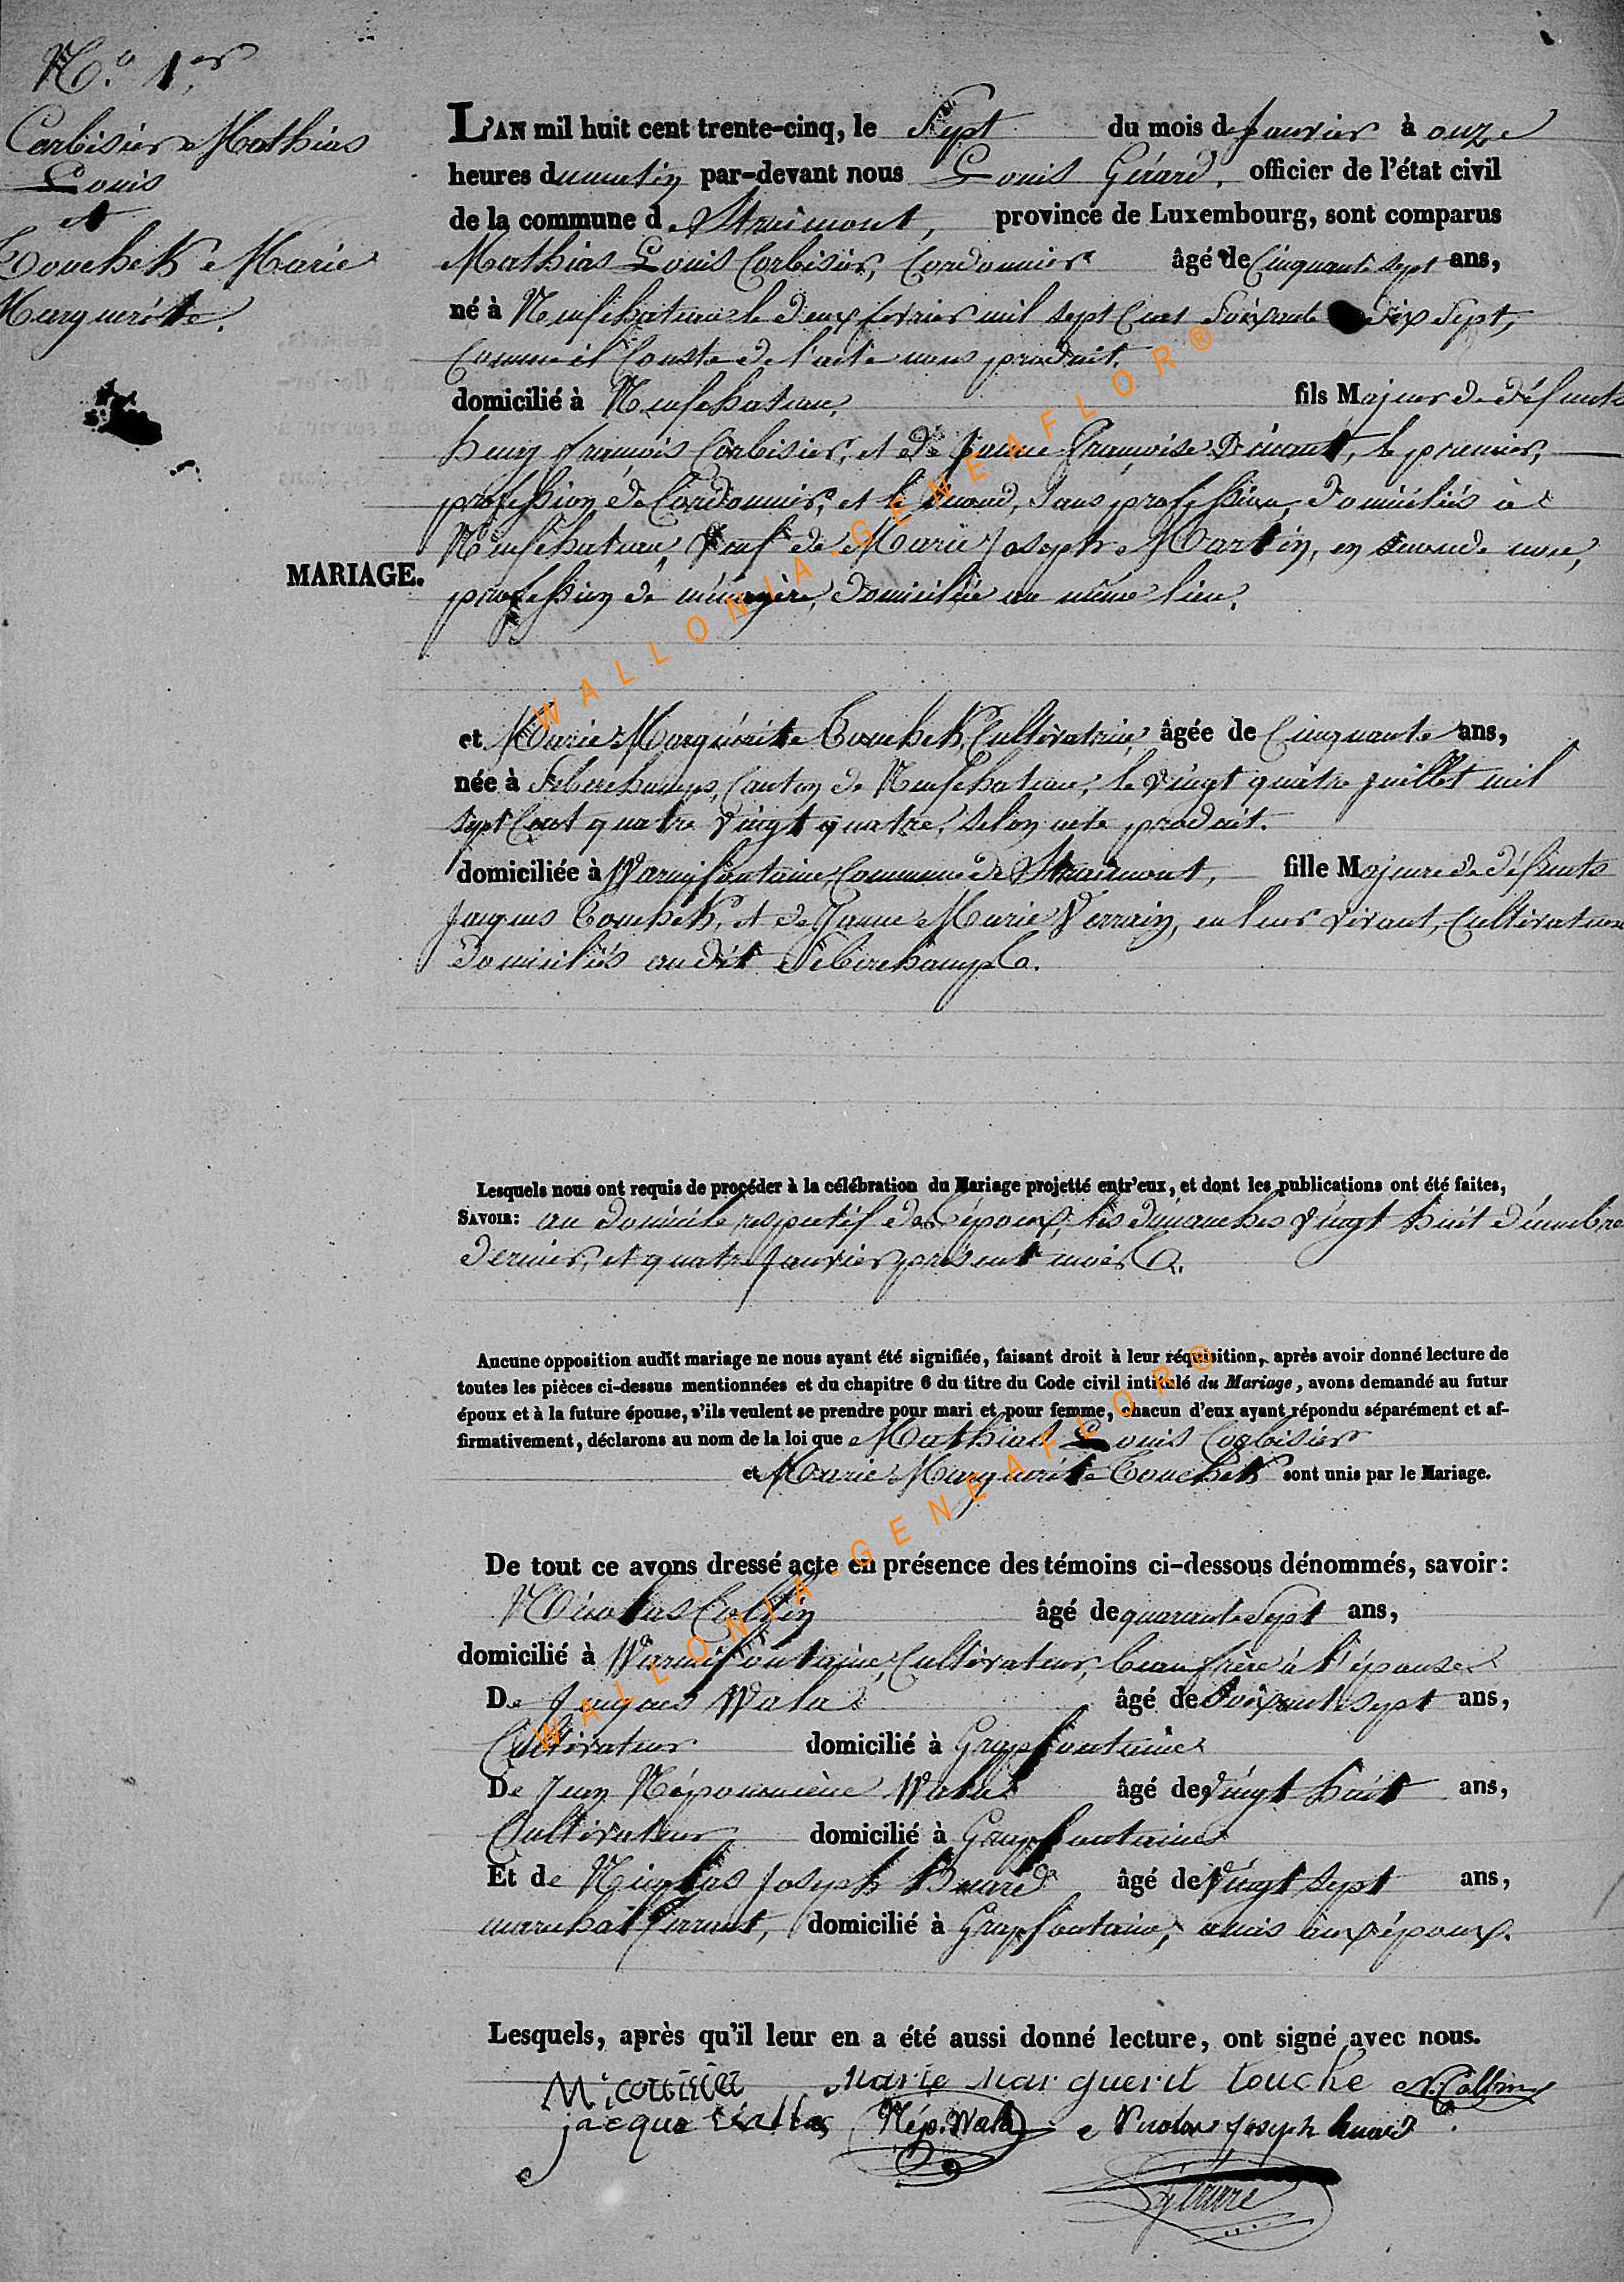 N.º 1.er
Corbisier Mathias
Louis
et
Touchek Marie
Marguérite.
MARIAGE.
L'AN mil huit cent trente-cinq, le Sept du mois de Janvier à onze
heures du matin par-devant nous Louis Gérard, officier de l'état civil
de la commune de Straimont, province de Luxembourg, sont comparus
Mathias Louis Corbisier, Cordonnier âgé de Cinquante sept ans,
né à Neufchateau le deux février mil sept Cent Soixante dix Sept,
Comme il Conste de l'acte nous produit.
domicilié à Neufchateau, fils Majeur de défunts
henry françois Corbisier, et de Jeanne Françoise le premier,
profession de Cordonnier, et le second, Sans profession, domiciliés à
Neufchateau, Veuf de Marie Joseph Martin, en seconde noce,
profession de ménagère, domiciliée au même lieu.
et Marie Marguérite Touchek, Cultivatrice, âgée de Cinquante ans,
née à Seberchamps, Canton de Neufchateau, le vingt quatre juillet mil
sept Cent quatre vingt quatre, selon acte produit.
domiciliée à Warmifontaine, Commune de Straimont, fille Majeure de défunts
Jacques Touchek, et de Jeanne Marie Verrain, en leur vivant, Cultivateurs
domiciliés au dit Seberchamps.
Lesquels nous ont requis de procéder à la célébration du Mariage projetté entr'eux, et dont les publications ont été faites,
SAVOIR: au domicile respectif des époux, les dimanches vingt huit décembre
dernier, et quatre Janvier présent mois.
Aucune opposition audit mariage ne nous ayant été signifiée, faisant droit à leur réquisition, après avoir donné lecture de
toutes les pièces ci-dessus mentionnées et du chapitre 6 du titre du Code civil intitulé du Mariage, avons demandé au futur
époux et à la future épouse, s'ils veulent se prendre pour mari et pour femme, chacun d'eux ayant répondu séparément et af-
firmativement, déclarons au nom de la loi que Mathias Louis Corbisier
et Marie Marguérite Touchek sont unis par le Mariage.
De tout ce avons dressé acte en présence des témoins ci-dessous dénommés, savoir:
Nicolas Collin âgé de quarante Sept ans,
domicilié à Warmifontaine, Cultivateur, beau frère à l'épouse
De Jacques Wala âgé de Soixante sept ans,
Cultivateur domicilié à Grapfontaine
De Jean Népomucène Wala âgé de vingt huit ans,
Cultivateur domicilié à Grapfontaine
Et de Nicolas Joseph Huard âgé de vingt sept ans,
marechal ferrant, domicilié à Grapfontaine, amis aux époux.
Lesquels, après qu'il leur en a été aussi donné lecture, ont signé avec nous.
M. corbisier Marie Marguerit touche N. Collin
jacque Walla Nép. Wala Nicolas Joseph huard
L Gérard
WALLONIA-GENEAFLOR®
WALLONIA-GENEAFLOR®